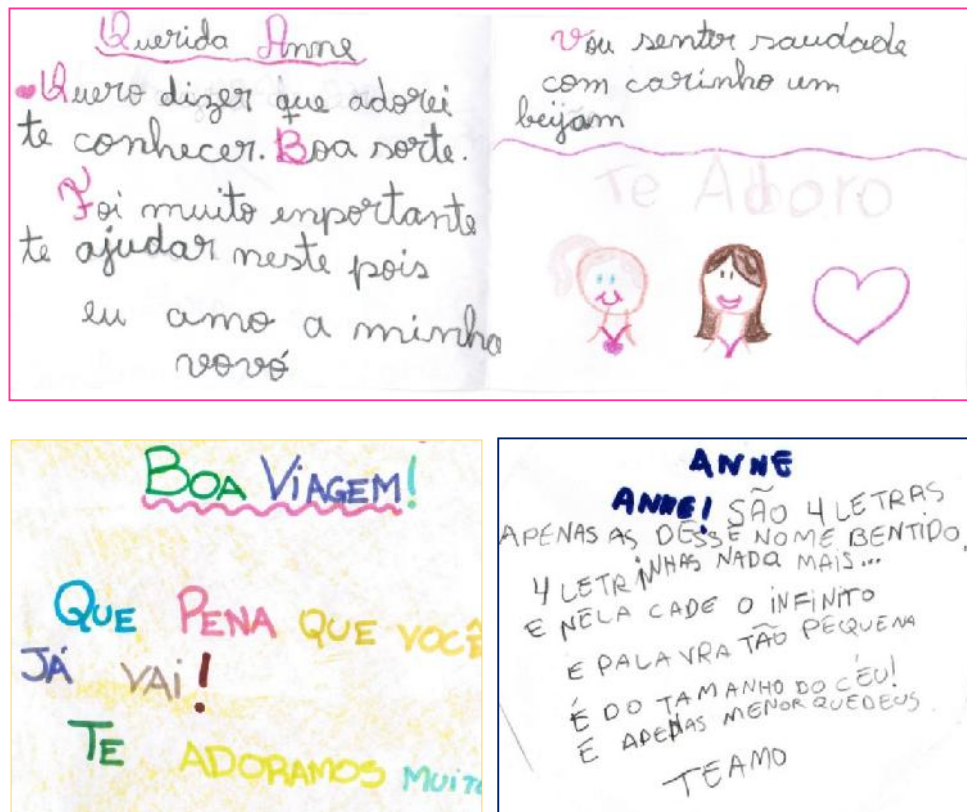 Querida Anne
Quero dizer que adorei
te conhecer. Boa sorte.
Foi muito enportante
te ajudar neste pois
eu amo a minha
vovó
Vou sentir saudade
com carinho um
beijam
Te Adoro
BOA ViAGEM!
QUE PENA QUE VOCÊ
JÁ VAi!
TE ADORAMOS MUiTO
ANNE
ANNE! SÃO 4 LETRAS
APENAS AS DESSE NOME BENTIDO,
4 LETRiNHAS NADA MAiS...
E NELA CADE O iNFiNiTO
E PALAVRA TÃO PEQUENA
É DO TAMANHO DO CÉU!
E APENAS MENOR QUE DEUS.
TE AMO